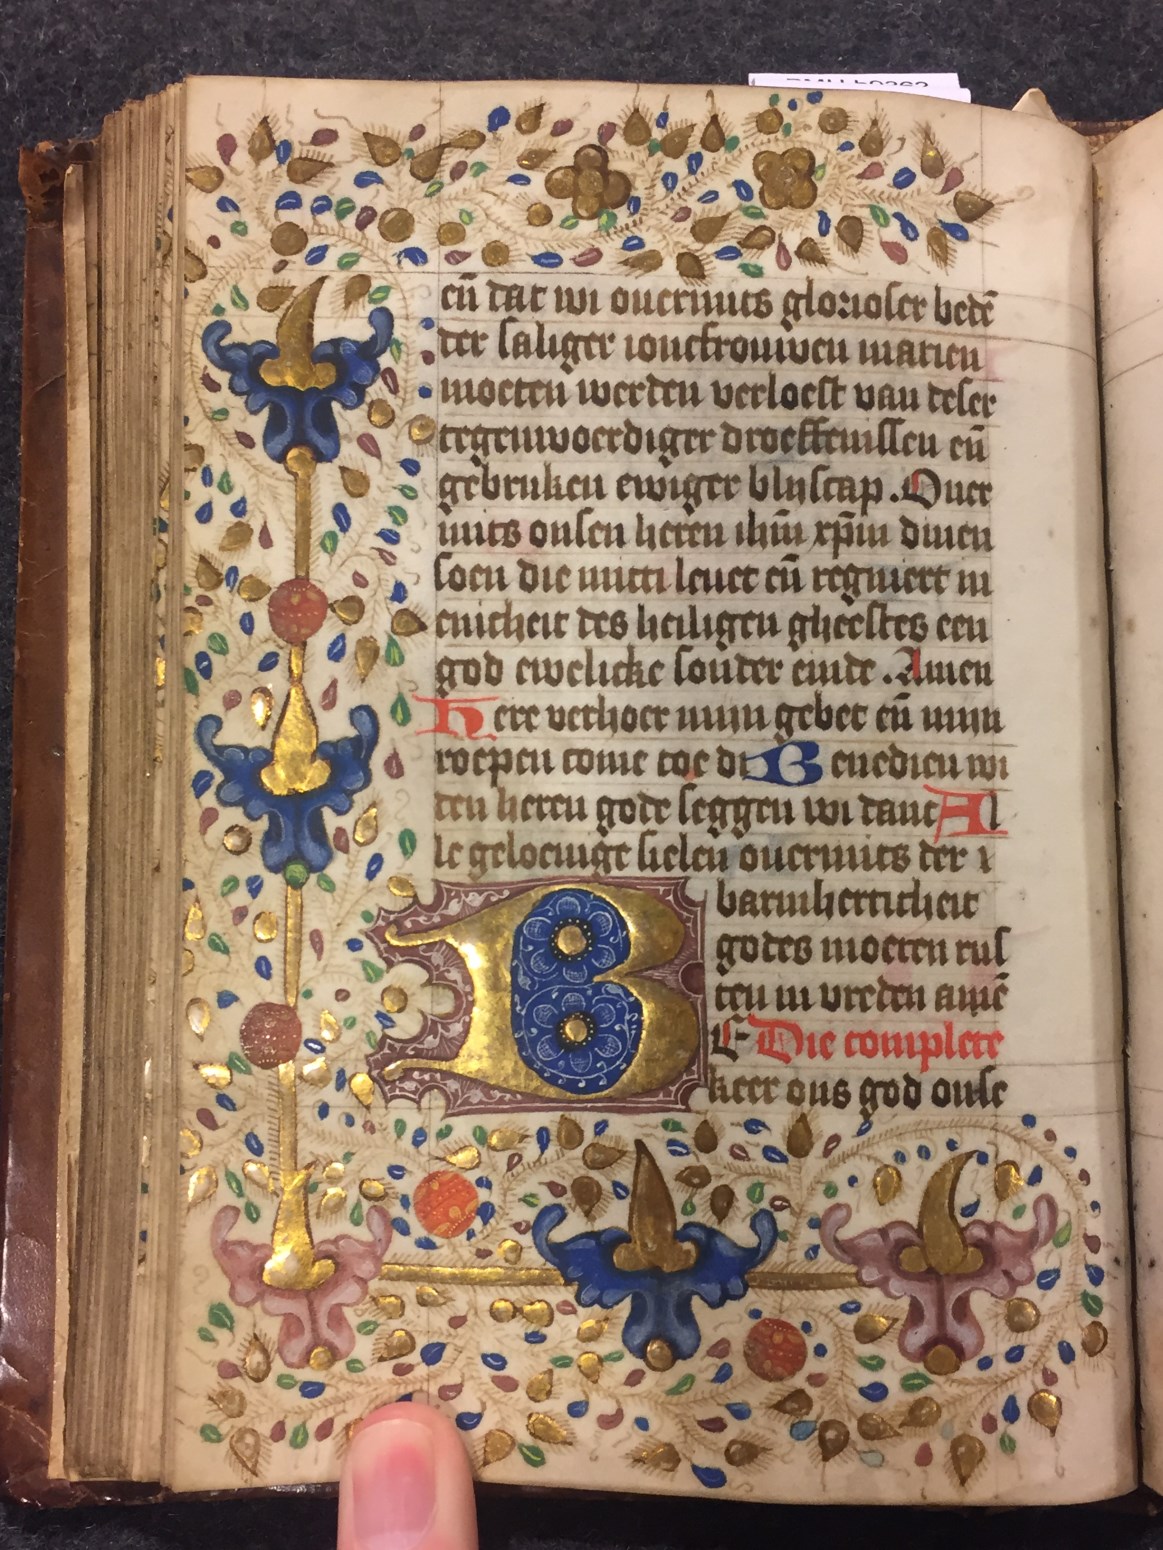 eñ dat wi ouermits glorioser bedē
der saliger ioncfrouwen marien
moeten werden verloest van deser
tegenwoerdiger droeffenissen eñ
gebruken ewiger blijscap. Ouer
mits onsen heren ihm̄ xp̄m dinen
soen die mitti leuet eñ regniert in
enicheit des heiligen gheestes een
god ewelicke sonder einde. Amen
Here verhoer mijn gebet eñ mijn
roepen come toe di Benedien wi
den heren gode seggen wi danc Al
le geloeuige sielen ouermits der
barmherticheit
godes moeten rus
ten in vreden amē
Die complete
Bekeer ons god onse